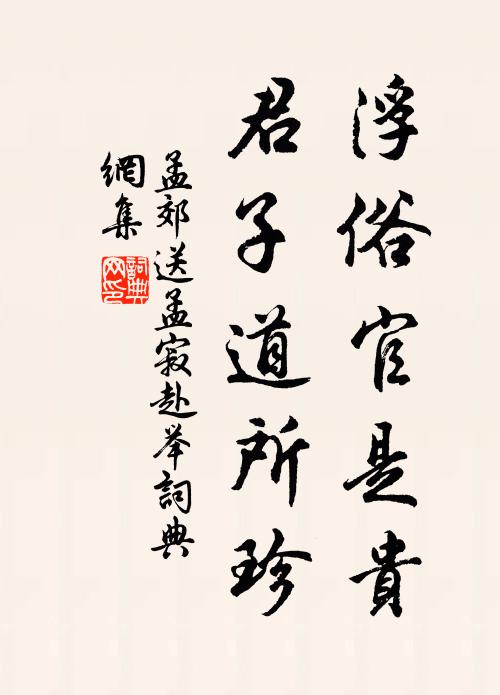 浮俗官是貴
君子道所珍
孟郊送孟寂赴举詞典
網集
詞典
网印